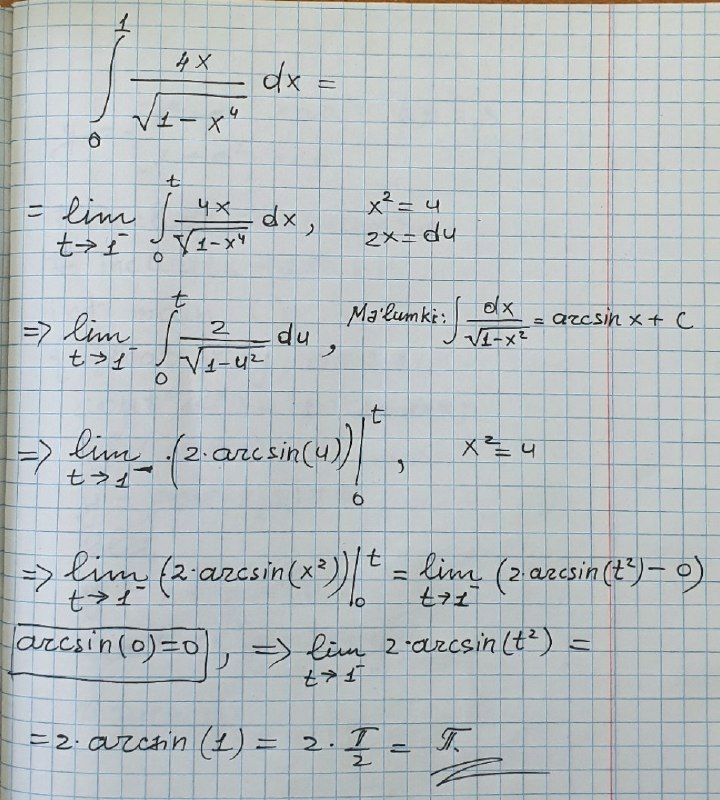 ∫₀¹ 4x/√(1-x⁴) dx =
= lim t→1⁻ ∫₀ᵗ 4x/√(1-x⁴) dx, x² = u
2x = du
=> lim t→1⁻ ∫₀ᵗ 2/√(1-u²) du, Ma'lumki: ∫ dx/√(1-x²) = arcsin x + C
=> lim t→1⁻ ·(2·arcsin(u))|₀ᵗ, x² = u
=> lim t→1⁻ (2·arcsin(x²))|₀ᵗ = lim t→1⁻ (2·arcsin(t²) - 0)
arcsin(0)=0, => lim t→1⁻ 2·arcsin(t²) =
= 2·arcsin(1) = 2·π/2 = π.